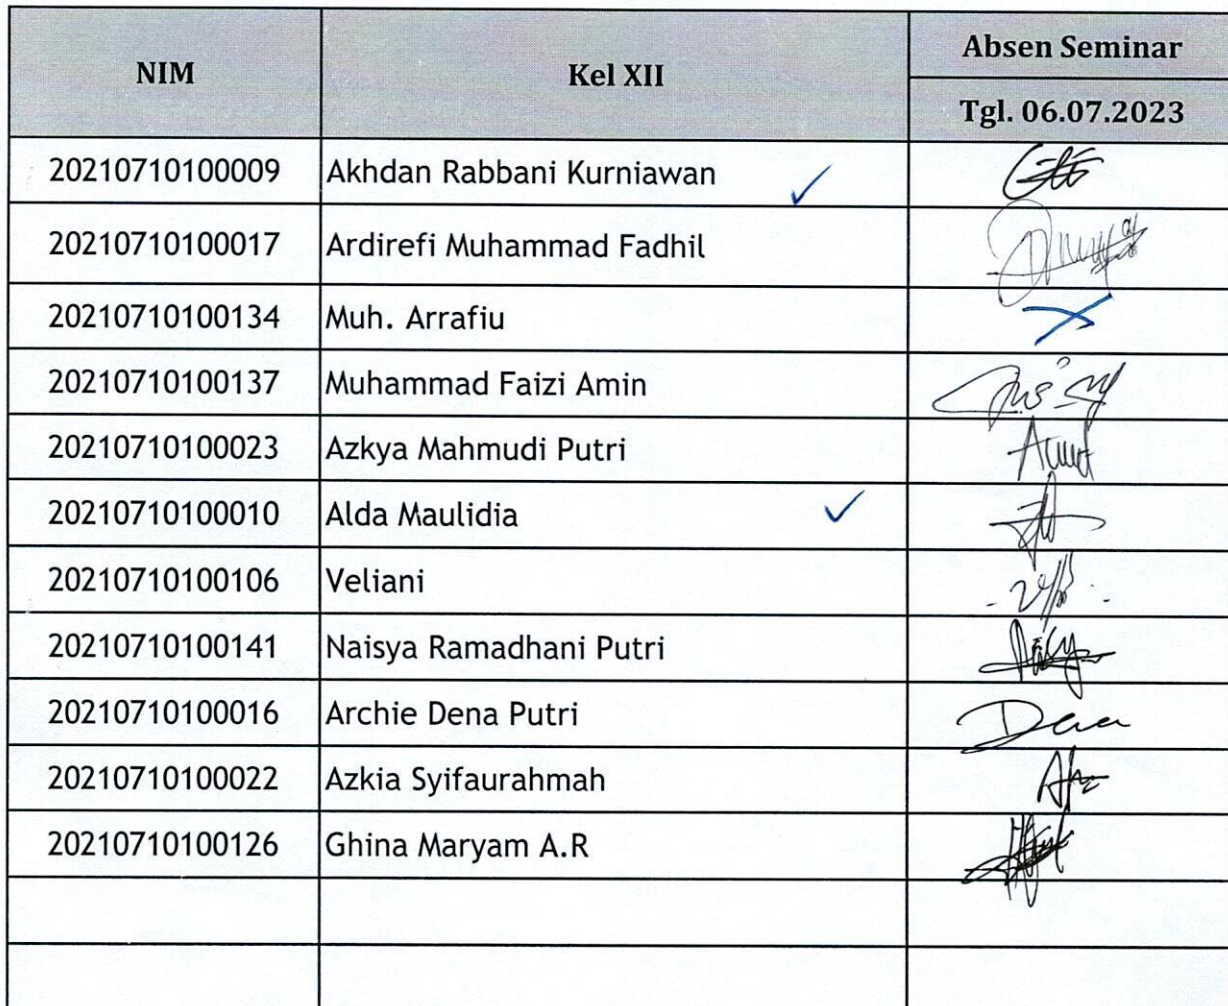 NIM Kel XII Absen Seminar
Tgl. 06.07.2023
20210710100009 Akhdan Rabbani Kurniawan
20210710100017 Ardirefi Muhammad Fadhil
20210710100134 Muh. Arrafiu
20210710100137 Muhammad Faizi Amin
20210710100023 Azkya Mahmudi Putri
20210710100010 Alda Maulidia
20210710100106 Veliani
20210710100141 Naisya Ramadhani Putri
20210710100016 Archie Dena Putri
20210710100022 Azkia Syifaurahmah
20210710100126 Ghina Maryam A.R